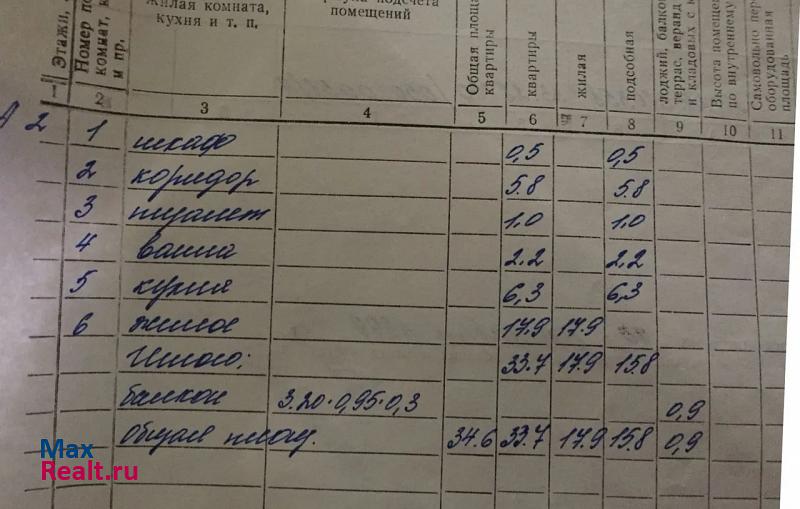 Жилая комната, кухня и т. п.
помещений
Общая площ квартиры
квартиры
жилая
подсобная
лоджий, балкон террас, веранд и кладовых с к
Высота помеще по внутреннему
Самовольно пере оборудованная площадь
Этажи,
Номер по комнат, к и пр.
1 2 3 4 5 6 7 8 9 10 11
2 1 шкаф 0,5 0,5
2 коридор 5.8 5.8
3 туалет 1.0 1.0
4 ванна 2.2 2,2
5 кухня 6,3 6,3
6 жилое 17.9 17.9
Итого: 33.7 17.9 15.8
балкон 3.20·0,95·0,3 0,9
общая площ. 34.6 33.7 17.9 15.8 0,9
Max
Realt.ru